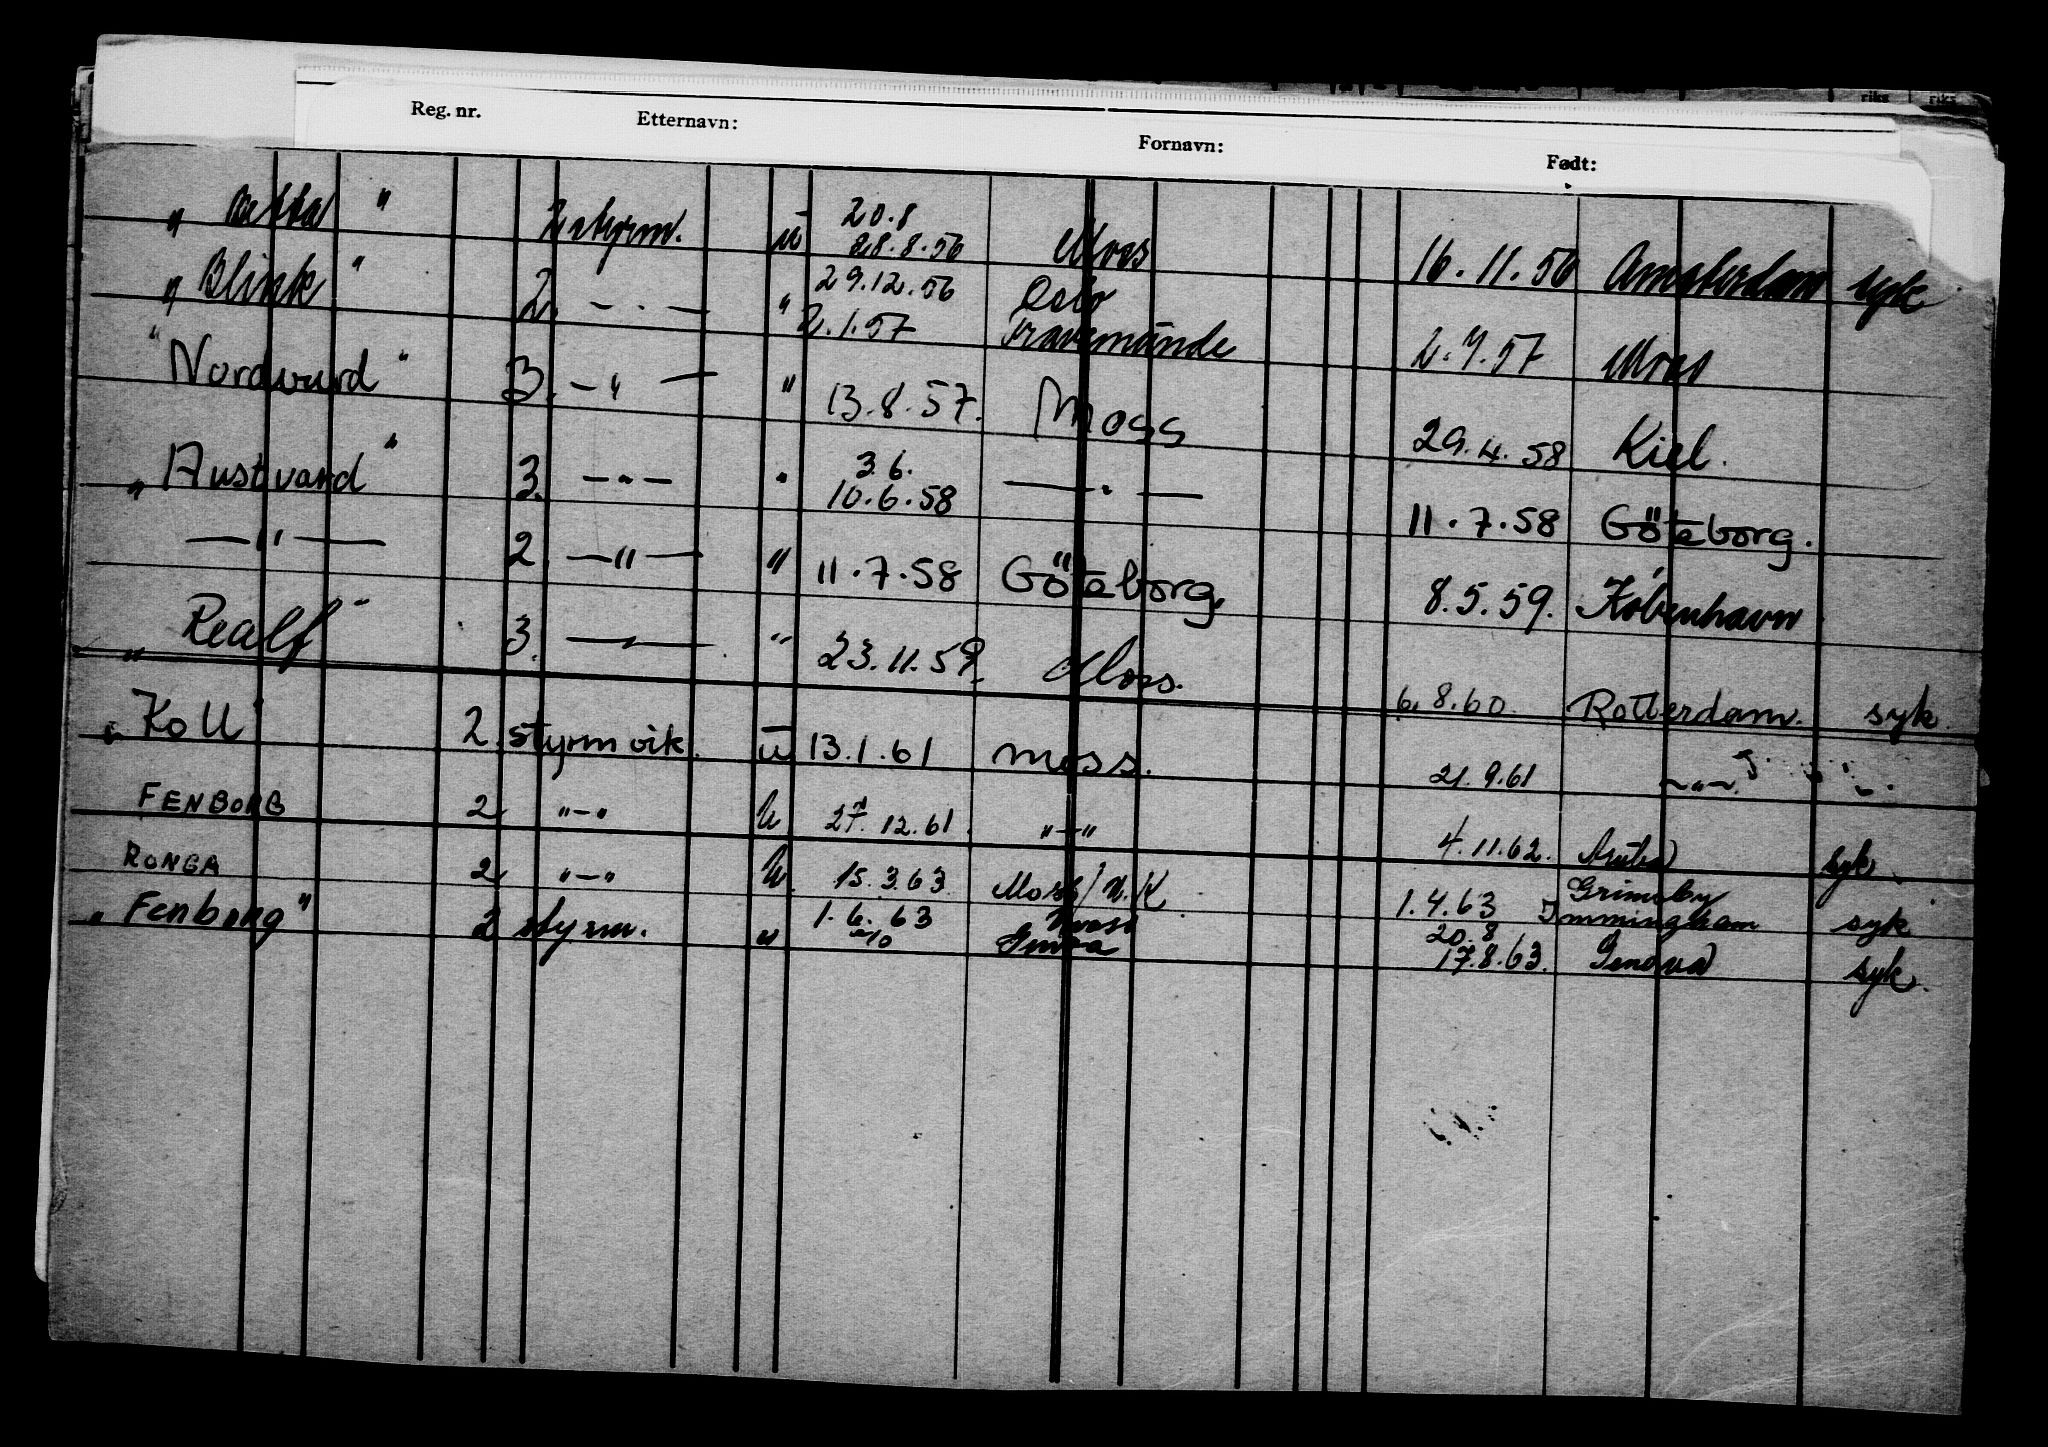 Reg. nr. Etternavn: Fornavn: Født:
riks riks
" Betta " 2 styrm. ū 20.8 28.8.56 Moss 16.11.56 Amsterdam syk
" Blink " 2. - . - " 29.12.56 Oslo
2.1.57 Travemünde 2.7.57 Moss
" Nordvard " 3. - " - " 13.8.57. Moss 29.4.58 Kiel.
" Austvard " 3. - " - " 3.6. 10.6.58 — " — 11.7.58 Göteborg.
— " — 2. — " — " 11.7.58 Göteborg. 8.5.59. København
" Realf " 3. — " — " 23.11.59 Moss. 6.8.60. Rotterdam. syk.
" Koll " 2. styrm vik. ū 13.1.61 moss. 21.9.61 ~ " ~
FENBORG 2 " - " u 27.12.61. " - " 4.11.62. Aruba syk.
RONGA 2 " - " u. 15.3.63. Moss/N.K 1.4.63 Grimsby Immingham syk
" Fenborg " 2 styrm. u 1.6.63 Moss Genova 20.8 17.8.63. Genova syk.